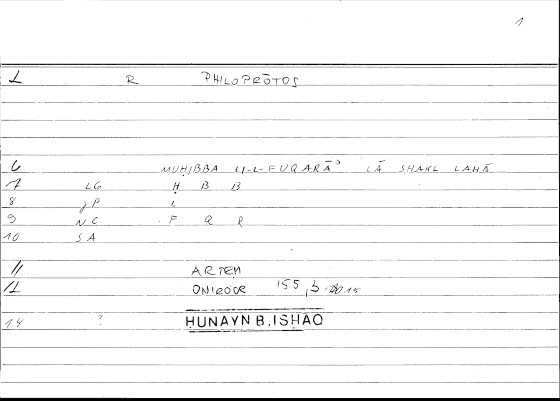 1
1 R PHILOPRŌTOS
6 MUḤIBBA LI-L-FUQARĀʾ LĀ SHAKL LAHĀ
7 LG Ḥ B B
8 gP L
9 NC F Q R
10 SA
11 ARTEM
12 ONIROCR 155,3
14 ?
HUNAYN B. ISHAQ